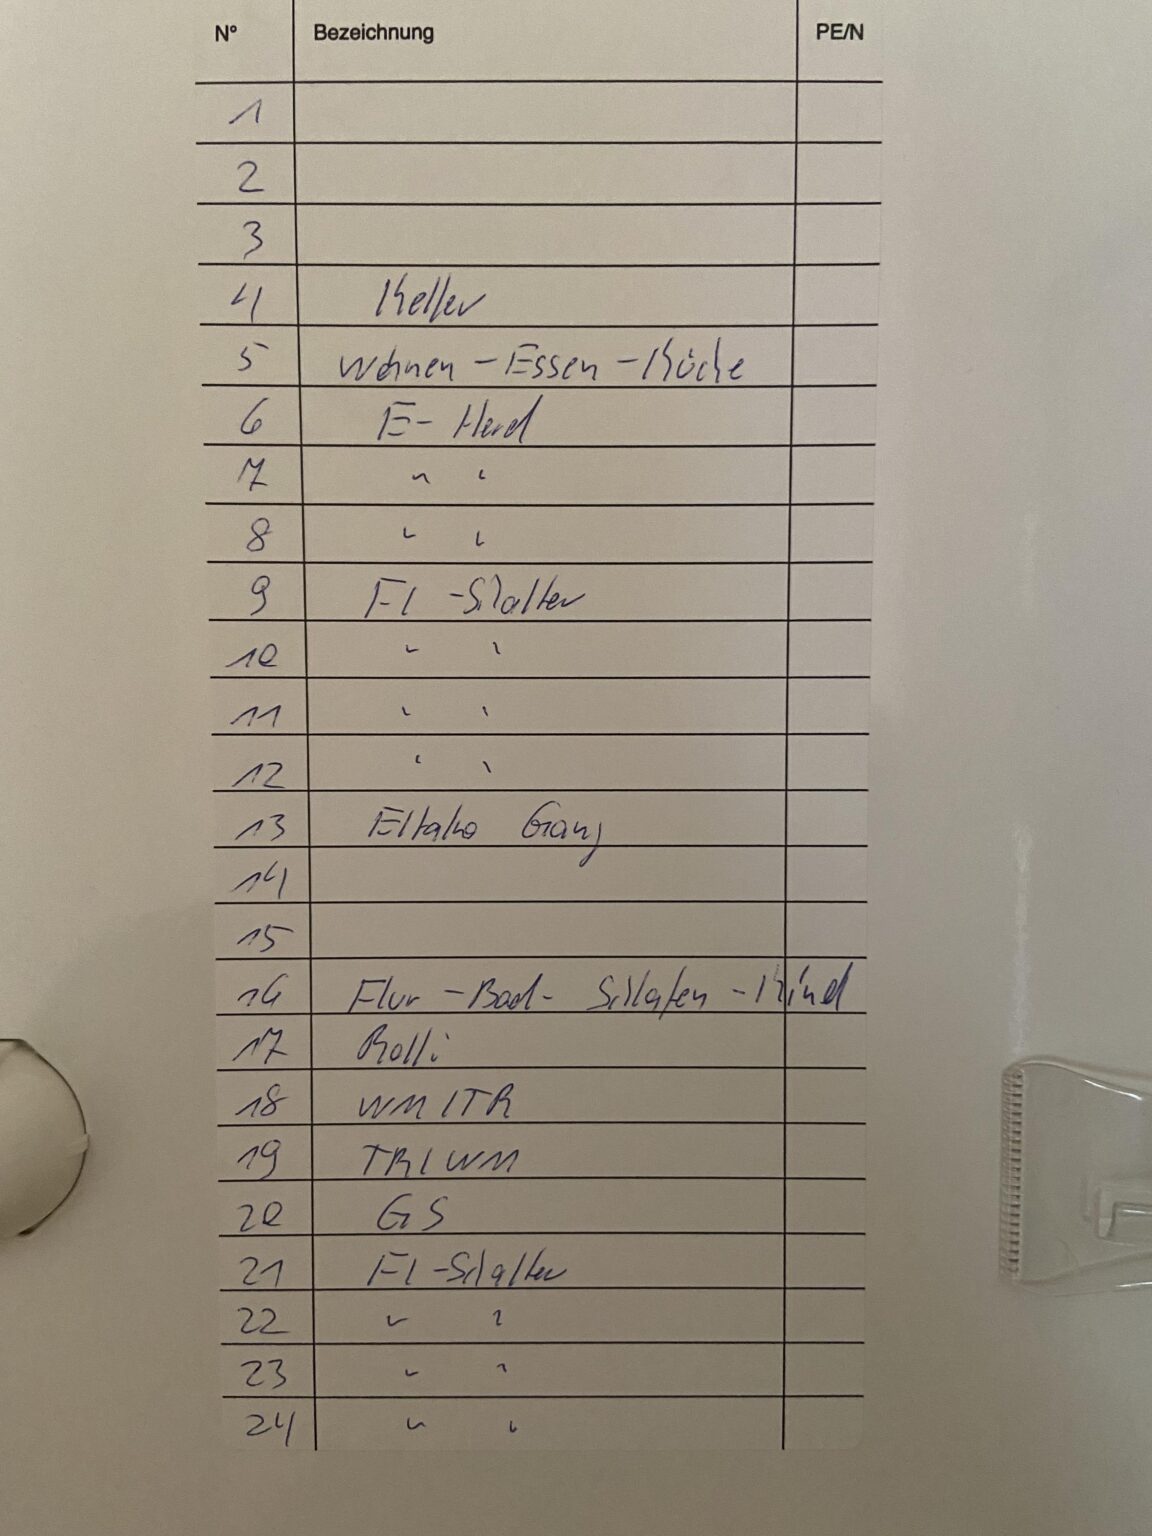 N° Bezeichnung PE/N
1
2
3
4 Keller
5 Wohnen - Essen - Küche
6 E - Herd
7 " "
8 " "
9 FI - Schalter
10 " "
11 " "
12 " "
13 Eltako Gang
14
15
16 Flur - Bad - Schlafen - Kind
17 Rolli
18 WM / TR
19 TR / WM
20 GS
21 FI - Schalter
22 " "
23 " "
24 " "